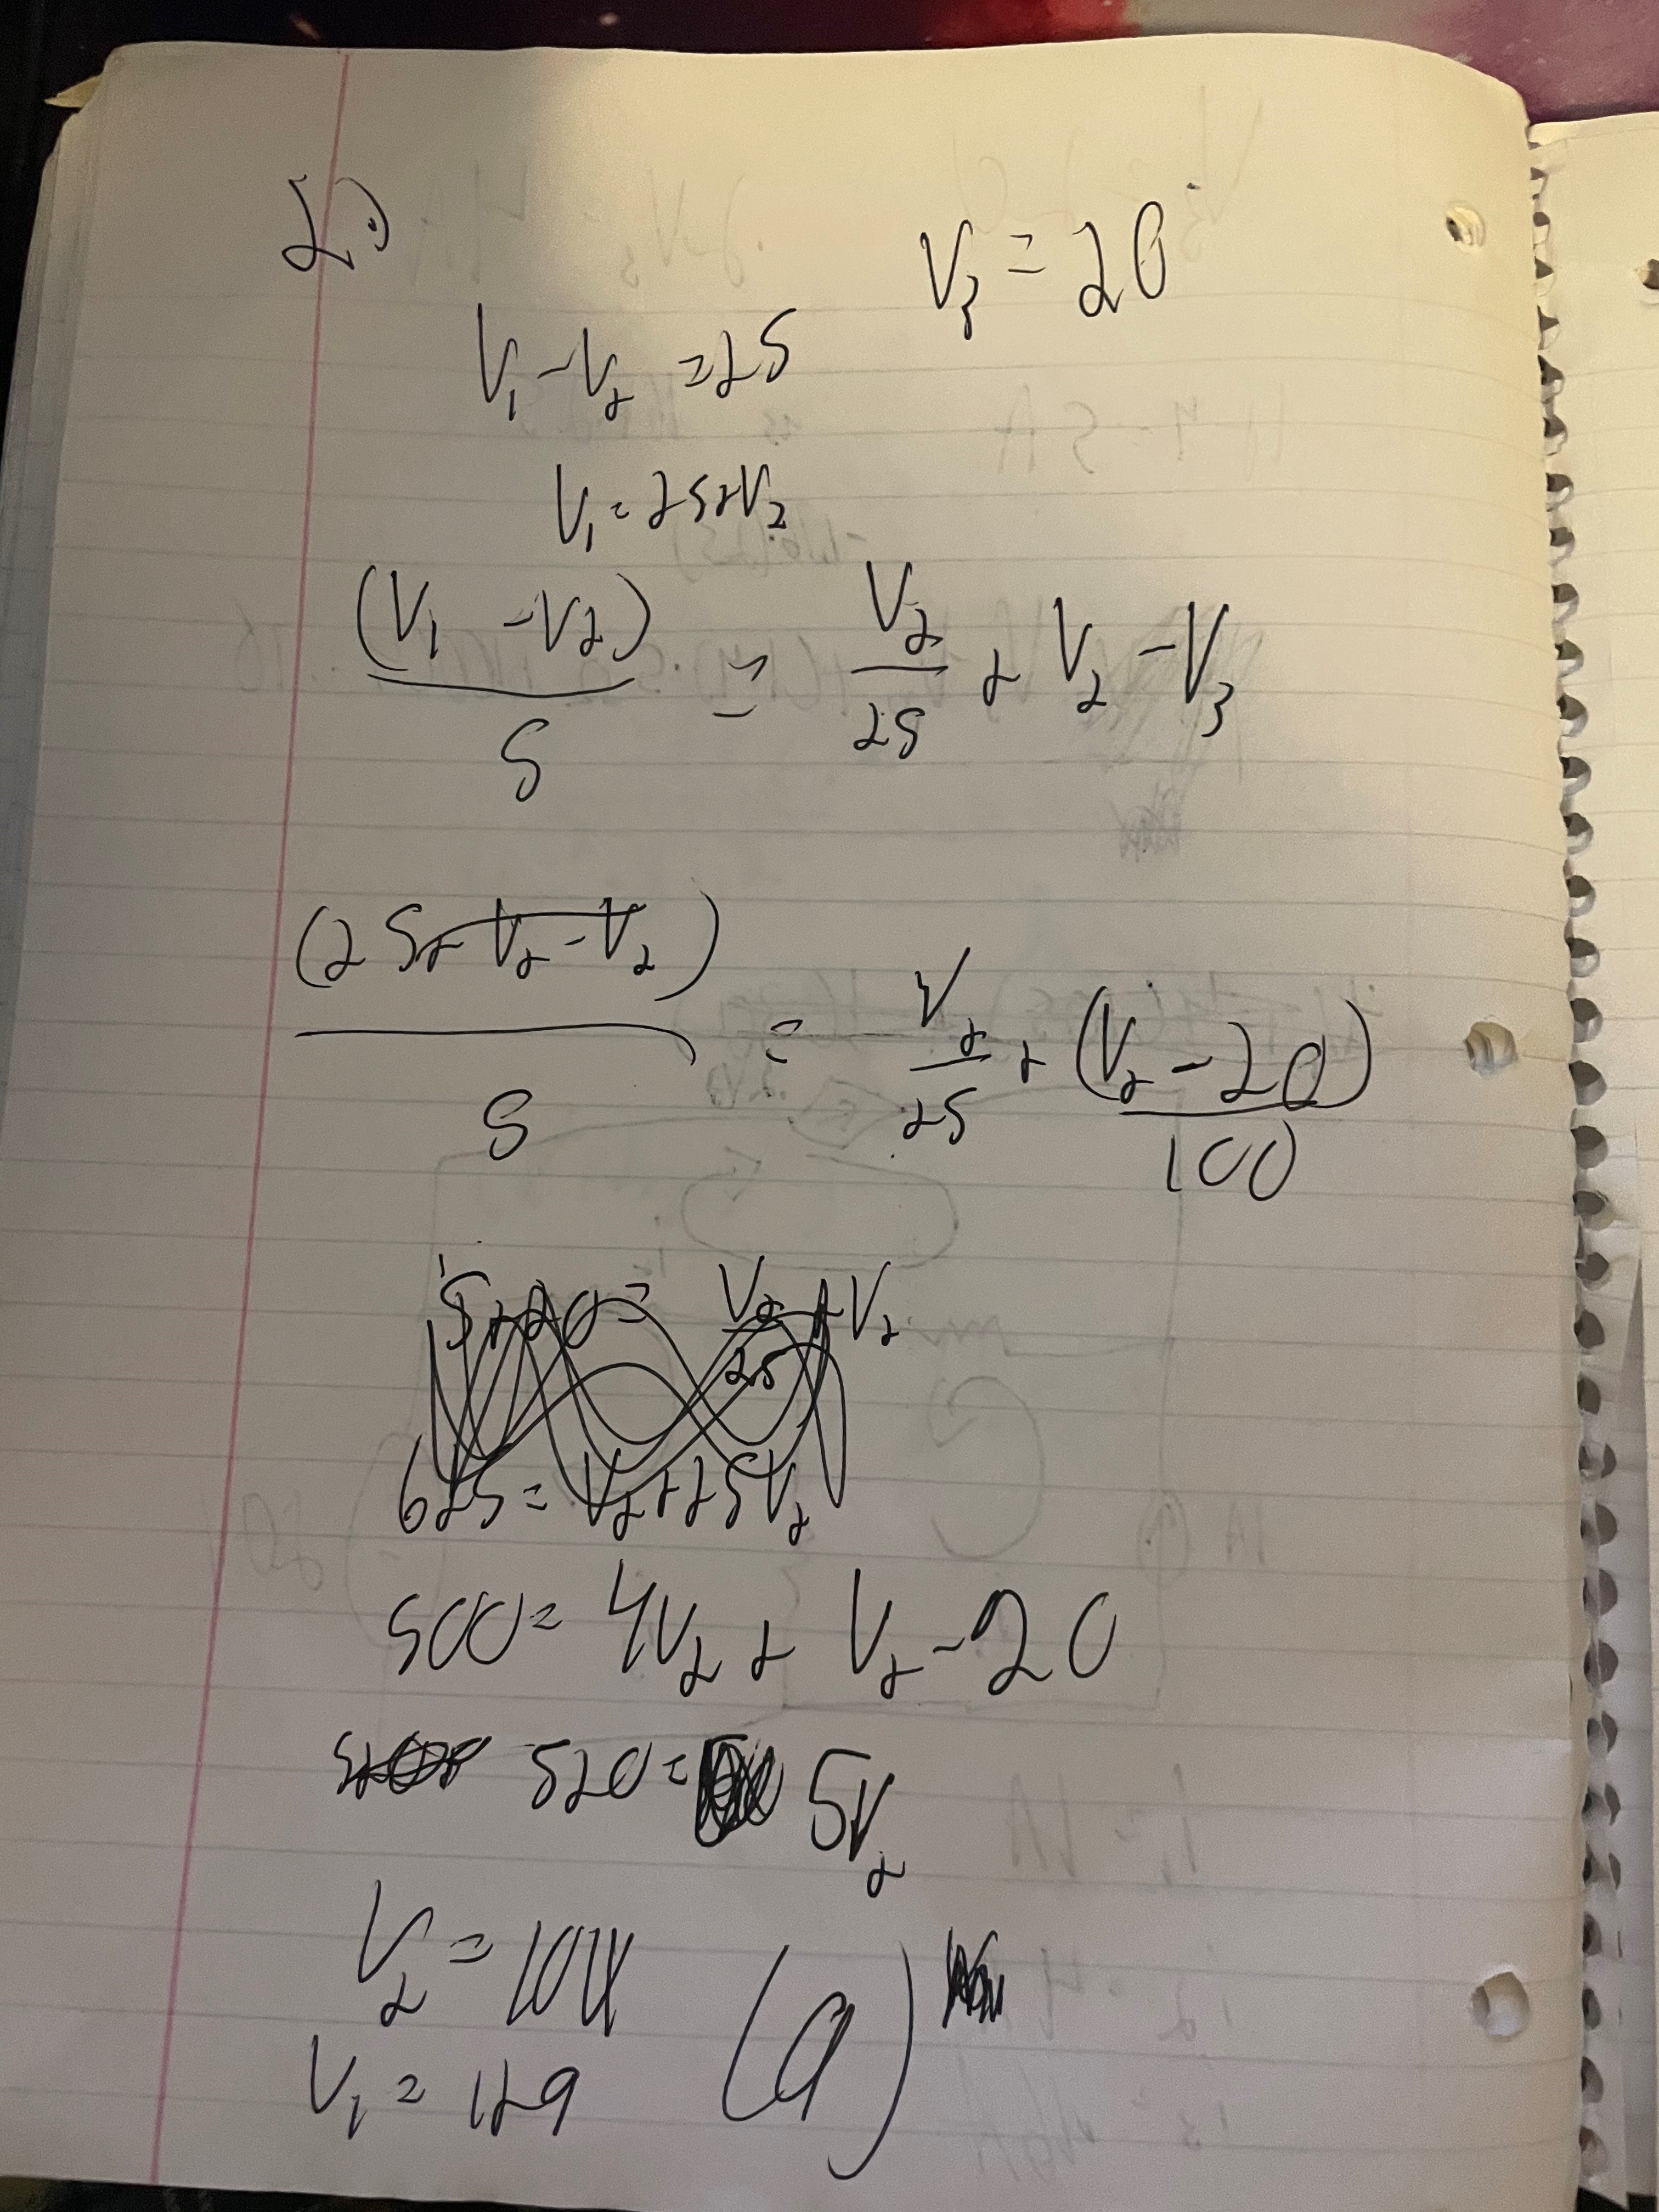 2.)
V₃ = 20
V₁ - V₂ = 25
V₁ = 25 + V₂
(V₁ - V₂)/5 = V₂/25 + V₂ - V₃
(25 + V₂ - V₂)/5 = V₂/25 + (V₂ - 20)/100
5 + 20 = V₂/25 + V₂
625 = V₂ + 25V₂
500 = 4V₂ + V₂ - 20
520 = 5V₂
V₂ = 104 (a)
V₁ = 129